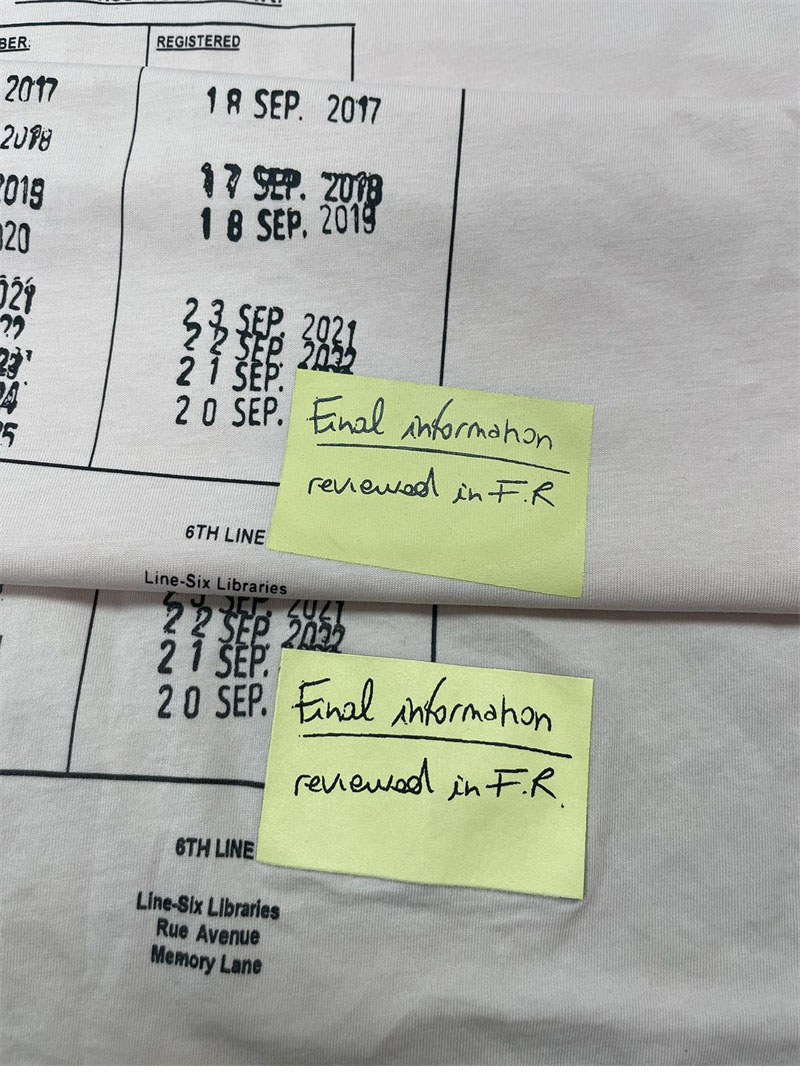 REGISTERED
2017
18 SEP. 2017
2018
17 SEP. 2018
2019
18 SEP. 2019
23 SEP. 2021
22 SEP. 2022
21 SEP.
20 SEP.
Final information
reviewed in F.R
6TH LINE
Line-Six Libraries
23 SEP. 2021
22 SEP. 2022
21 SEP.
20 SEP.
Final information
reviewed in F.R.
6TH LINE
Line-Six Libraries
Rue Avenue
Memory Lane